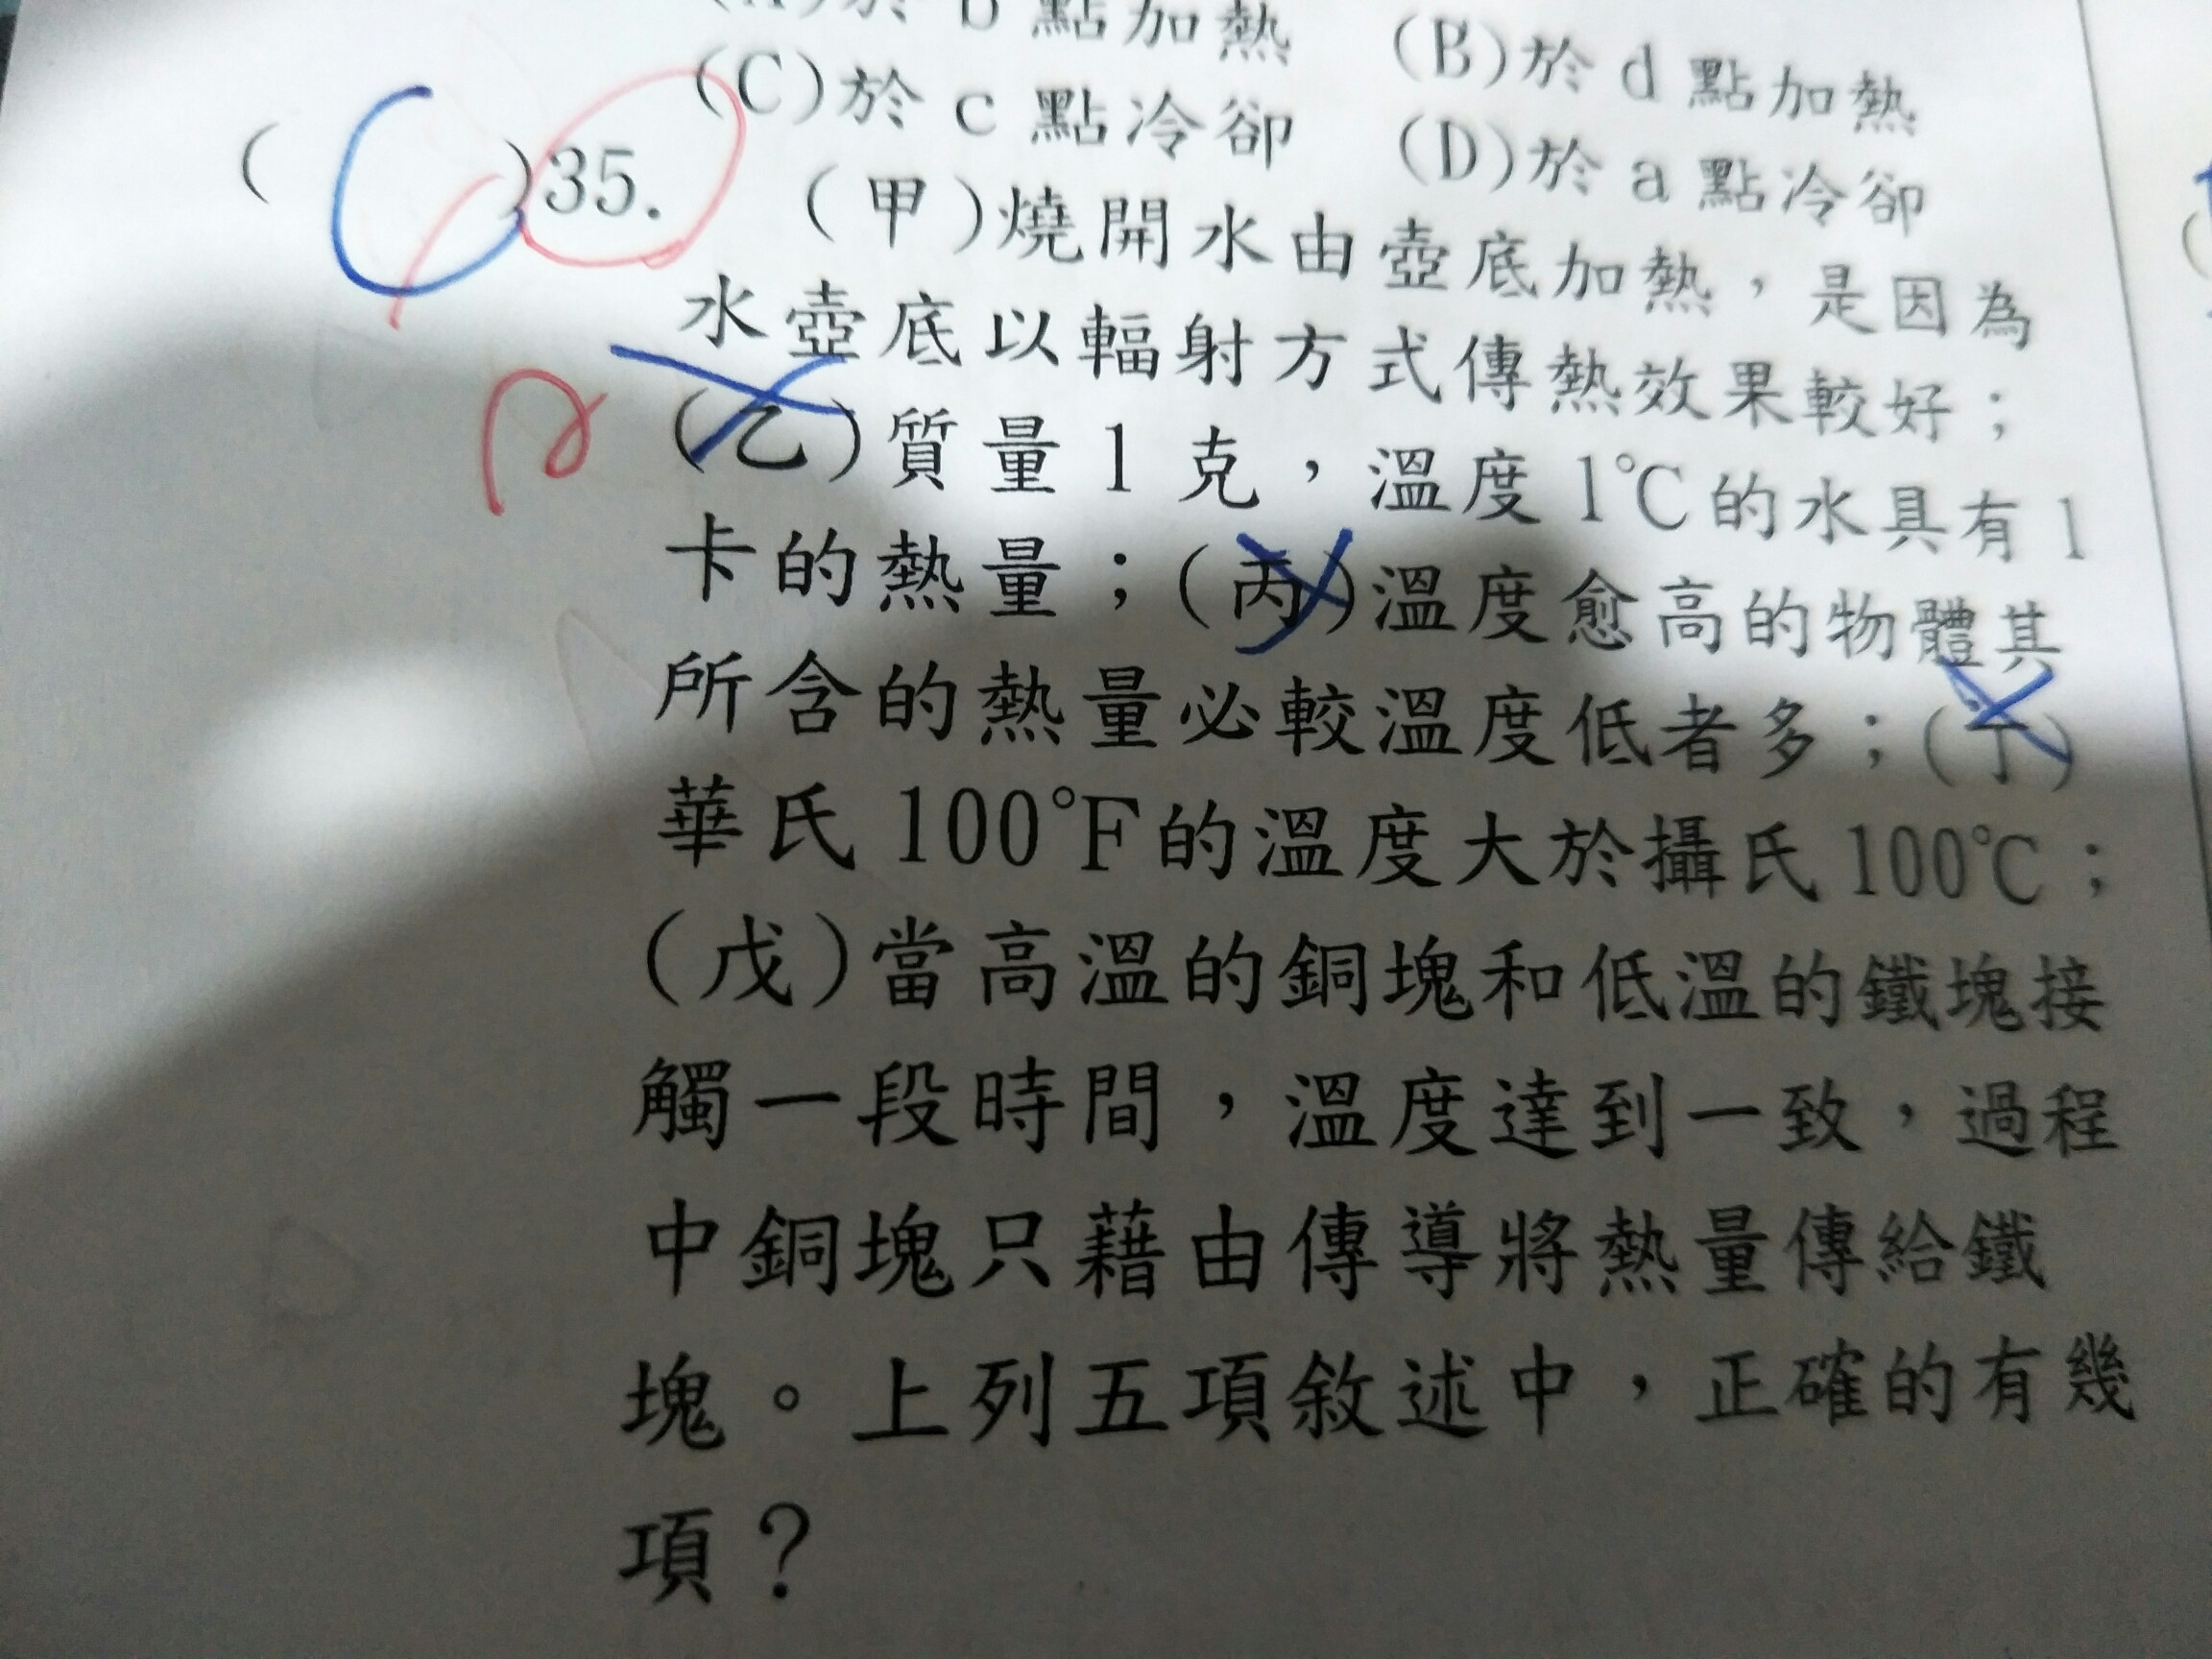 b 點加熱 (B)於 d 點加熱
(C)於 c 點冷卻 (D)於 a 點冷卻
( )35. (甲)燒開水由壺底加熱，是因為
水壺底以輻射方式傳熱效果較好；
(乙)質量 1 克，溫度 1℃的水具有 1
卡的熱量；(丙)溫度愈高的物體其
所含的熱量必較溫度低者多；(丁)
華氏 100℉的溫度大於攝氏 100℃；
(戊)當高溫的銅塊和低溫的鐵塊接
觸一段時間，溫度達到一致，過程
中銅塊只藉由傳導將熱量傳給鐵
塊。上列五項敘述中，正確的有幾
項？